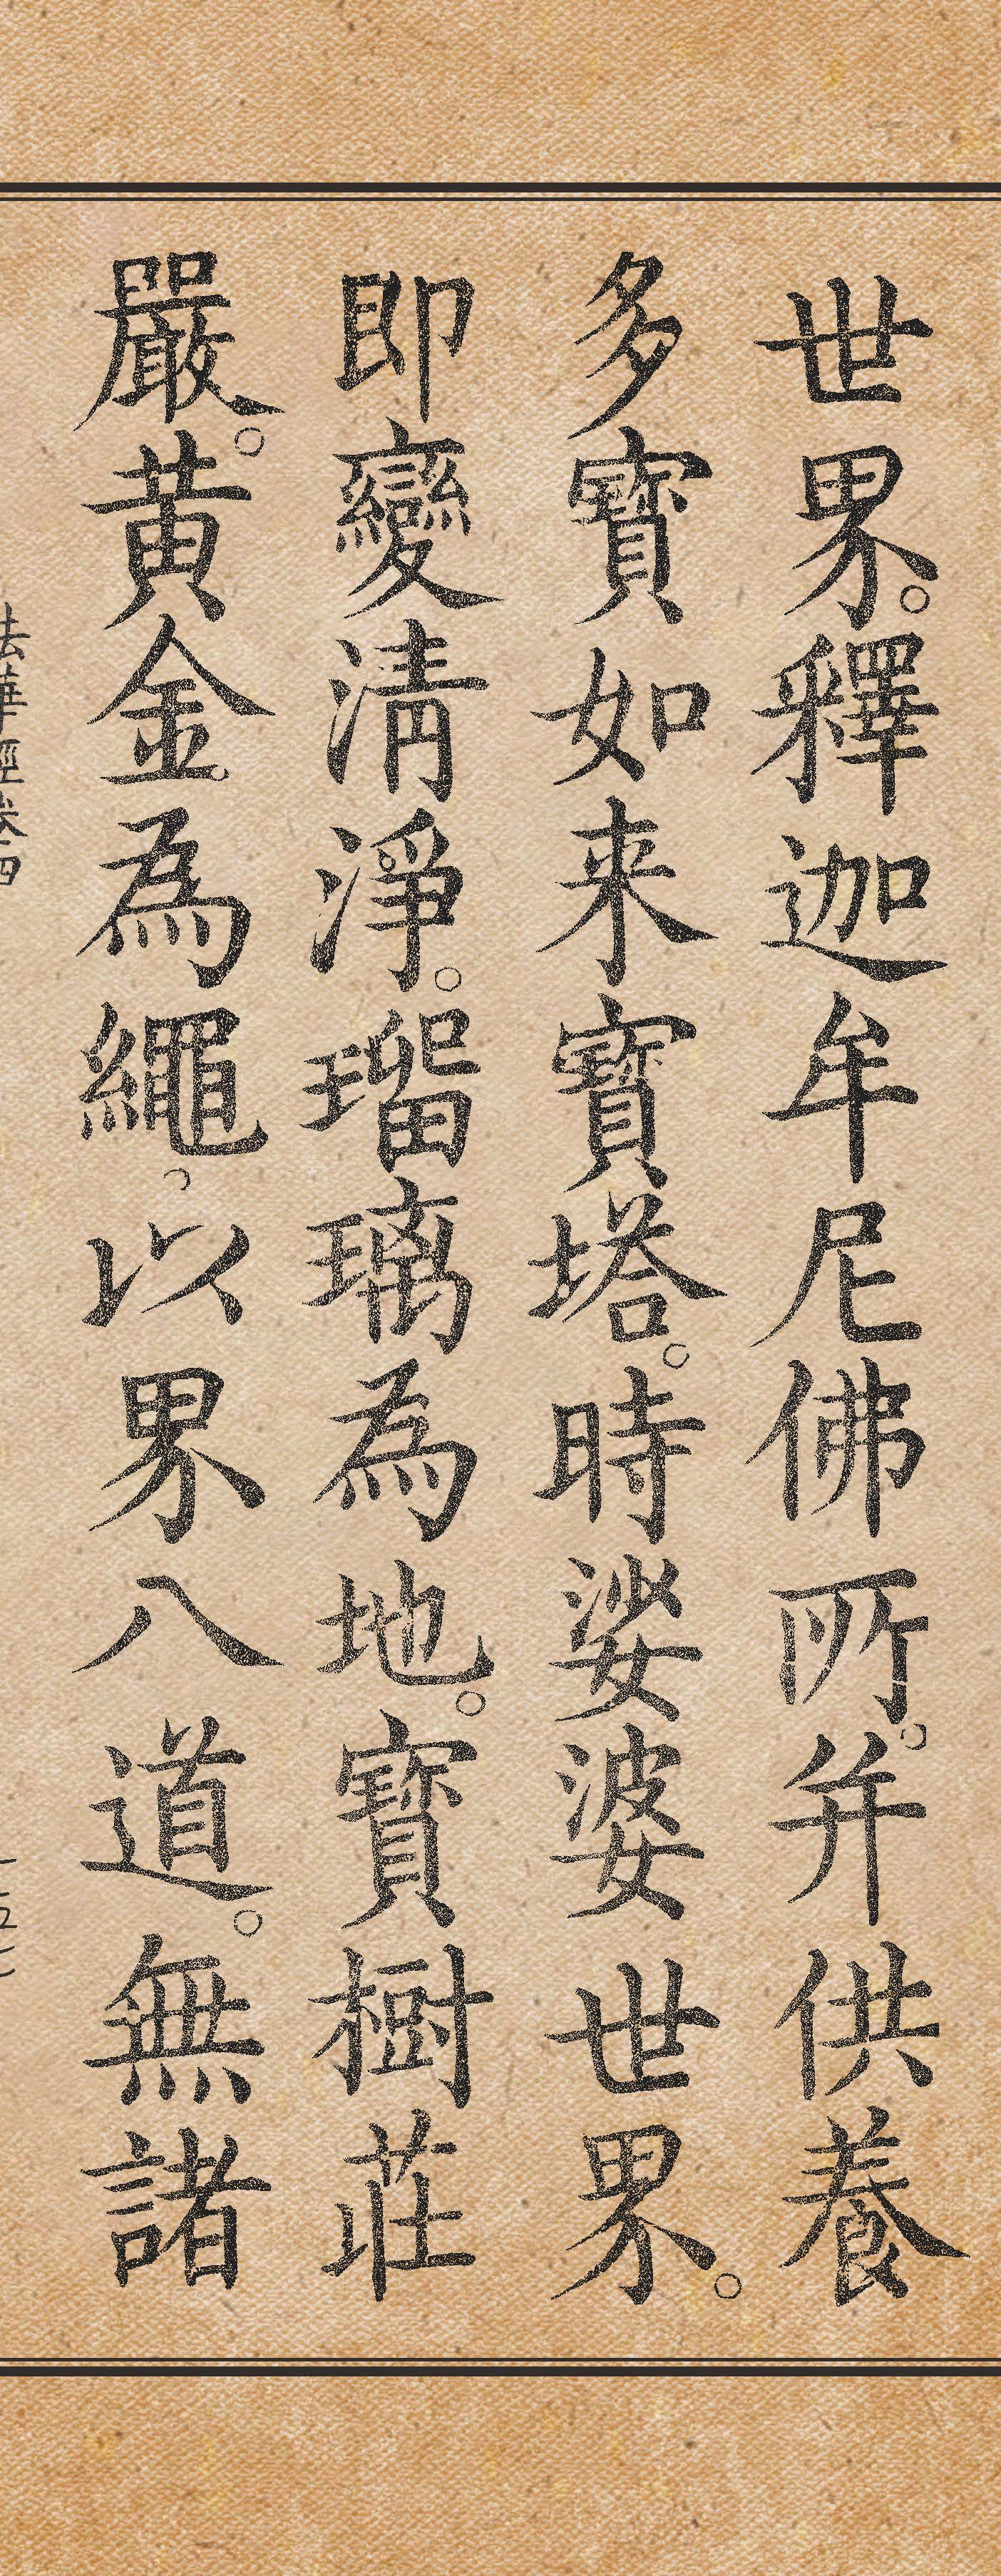 世界。釋迦牟尼佛所。并供養
多寶如来寶塔。時娑婆世界。
即變清淨。瑠璃為地。寶樹莊
嚴。黄金為繩。以界八道。無諸
法華經卷四